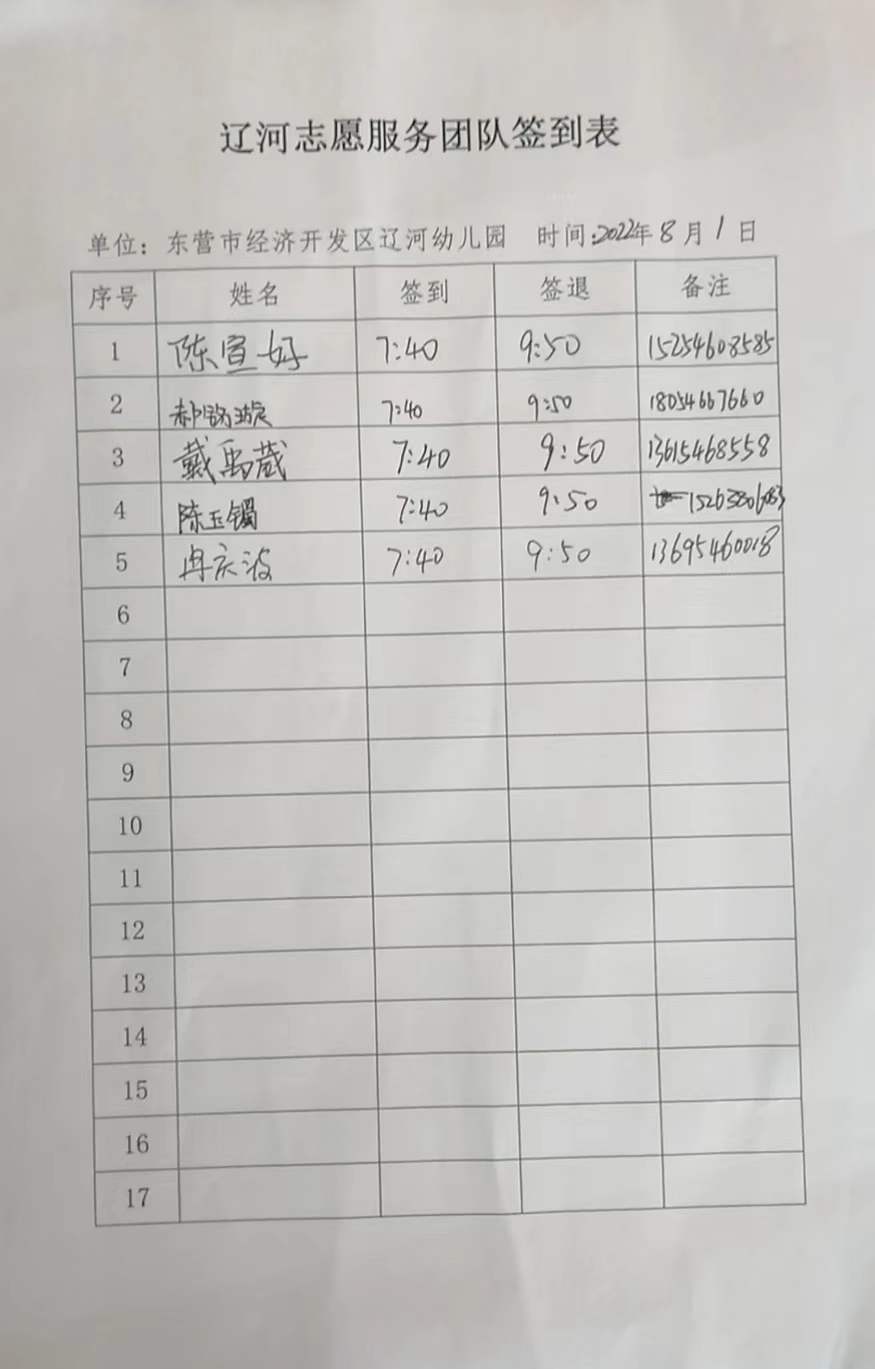 辽河志愿服务团队签到表
单位：东营市经济开发区辽河幼儿园 时间:2022年8月1日
序号 姓名 签到 签退 备注
1 陈宣好 7:40 9:50 15254608585
2 郝 7:40 9:50 18054667660
3 戴禹葳 7:40 9:50 13615468558
4 陈玉镯 7:40 9:50
5 冉庆波 7:40 9:50 13695460018
6
7
8
9
10
11
12
13
14
15
16
17